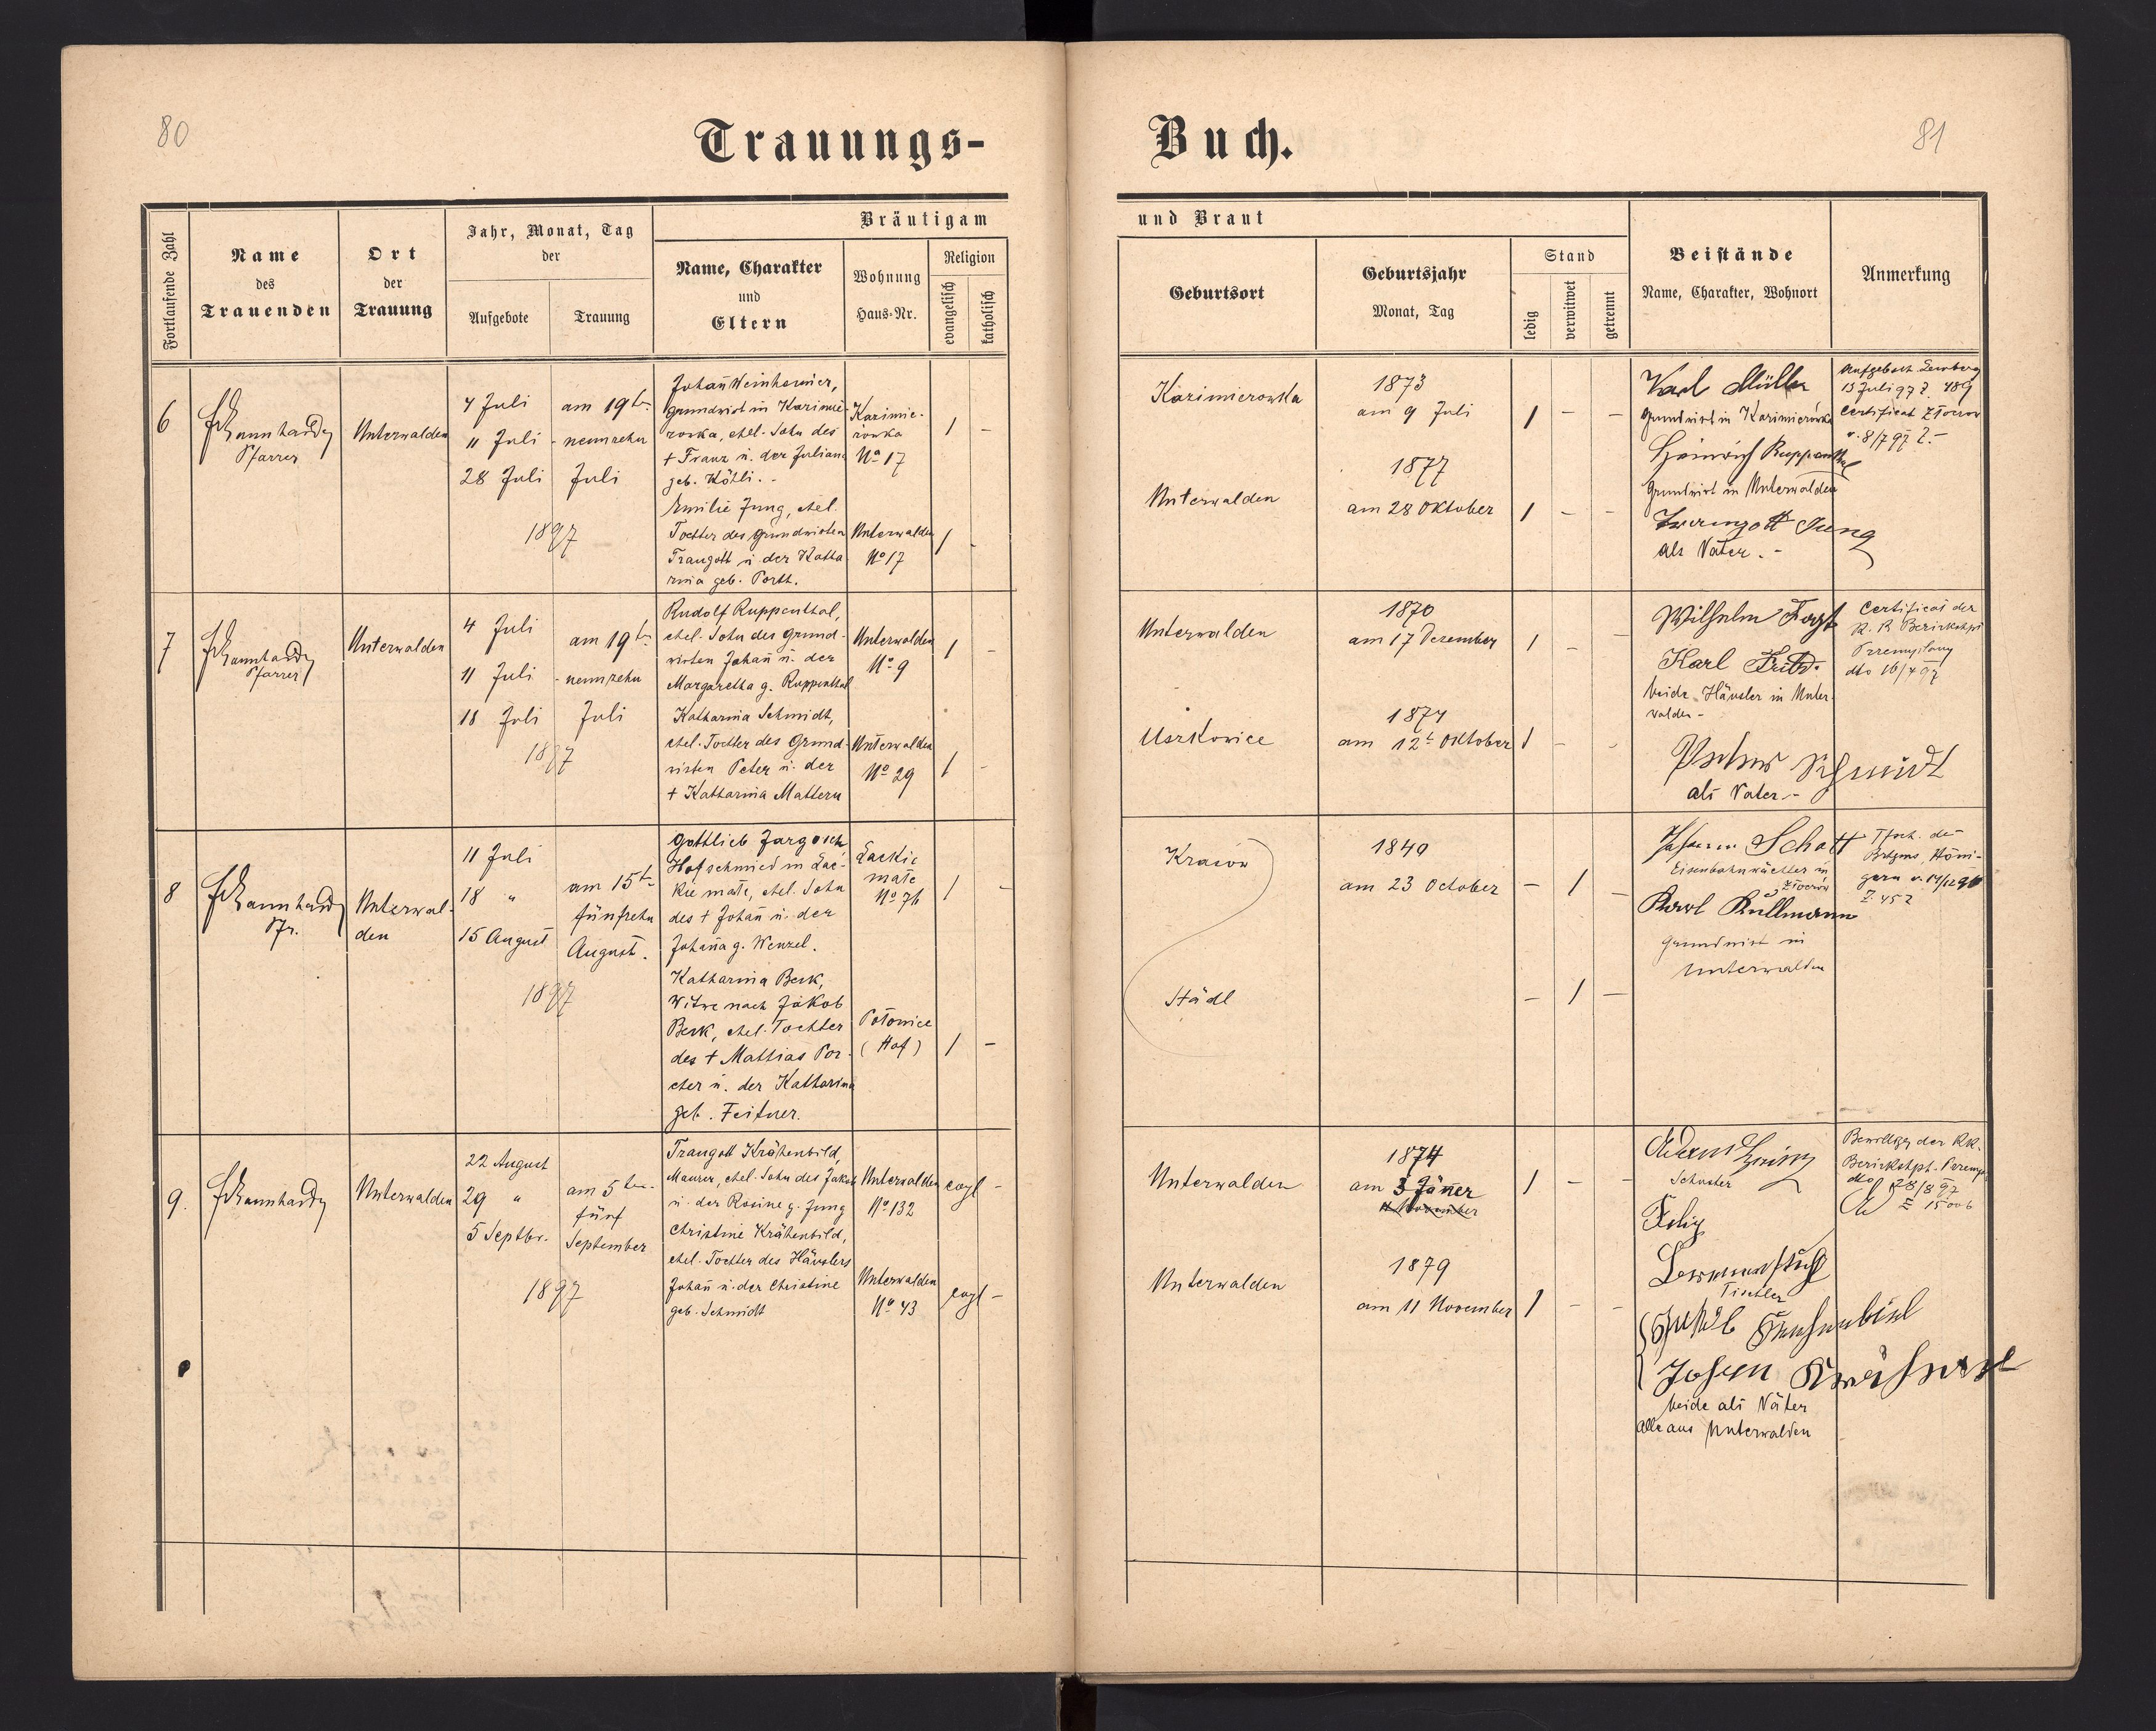 80
Trauungs-
Buch.
81
Fortlaufende Zahl
Name
des
Trauenden
Ort
der
Trauung
Jahr, Monat, Tag
der
Aufgebote
Trauung
Bräutigam
Name, Charakter
und
Eltern
Wohnung
Haus-Nr.
Religion
evangelisch
katholisch
und Braut
Geburtsort
Geburtsjahr
Monat, Tag
Stand
ledig
verwitwet
getrennt
Beistände
Name, Charakter, Wohnort
Anmerkung
6
Pfarrer
Unterwalden
4 Juli
11 Juli
28 Juli
am 19t
neunzehn
Juli
1897
Johañ Weinheimer,
Grundwirt in Kazimie-
rowka, ehel. Sohn des
+ Franz u. der Juliana
geb. Köhli. -
Kazimie-
rowka
No 17
1 -
Emilie Jung, ehel.
Tochter des Grundwirten
Traugott u. der Katha
rina geb. Porth.
Unterwalden
No 17
1 -
Kazimierowka
1873
am 9 Juli
1 - -
Unterwalden
1877
am 28 Oktober
1 - -
Karl Müller
Grundwirt in Kazimierówka
Heinrich Ruppenthal
Grundwirt in Unterwalden
Traugott Jung
als Vater. -
Aufgebot Lemberg
13 Juli 97 Z. 489
Certificat Złoczow
v. 8/7 97 Z. -
7
Pfarrer
Unterwalden
4 Juli
11 Juli
18 Juli
am 19t
neunzehn
Juli
1897
Rudolf Ruppenthal,
ehel. Sohn des Grund-
wirten Johañ u. der
Margaretha g. Ruppenthal
Unterwalden
No 9
1 -
Katharina Schmidt,
ehel. Tochter des Grund-
wirten Peter u. der
+ Katharina Mattern
Unterwalden
No 29
1 -
Unterwalden
1870
am 17 Dezember
1 - -
Uszkowice
1874
am 12t Oktober
1 - -
Wilhelm
Karl
beide Häusler in Unter-
walden -
Peter Schmidt
als Vater -
Certificat der
K. K. Bezirkshpt
Przemyslany
dto 16/4 97
8
Pfr.
Unterwal-
den
11 Juli
18 "
15 August
am 15t
fünfzehn
August.
1897
Gottlieb Jargosch
Hofschmied in Lac-
kie małe, ehel. Sohn
des + Johañ u. der
Johaña g. Wenzel.
Lackie
małe
No 76
1 -
Katharina Berk,
Witwe nach Jakob
Berk, ehel. Tochter
des + Mattias Por-
cher u. der Katharina
geb. Feitner.
Połonice
(Hof)
1 -
Krasów
1849
am 23 October
- 1 -
Städl
- 1 -
Schatt
Eisenbahnwächter in
Złoczow
Karl Kullmann
Grundwirt in
Unterwalden
Z. 452
9.
Unterwalden
22 August
29 "
5 Septbr.
am 5ten
fünf
September
1897
Traugott Krähenbild,
Maurer, ehel. Sohn des Jakob
u. der Rosine g. Jung
Unterwalden
No 132
evgl -
Christine Krähenbild,
ehel. Tochter des Häuslers
Johañ u. der Christine
geb. Schmidt
Unterwalden
No 43
evgl -
Unterwalden
1874
am 3 Jäner
11 November
1 - -
Unterwalden
1879
am 11 November
1 - -
Schuster
Tischler
beide als Väter
alle aus Unterwalden
Bewillgg der KK.
Bezirkshpt. Przemys
dto 28/8 97
Z 15006